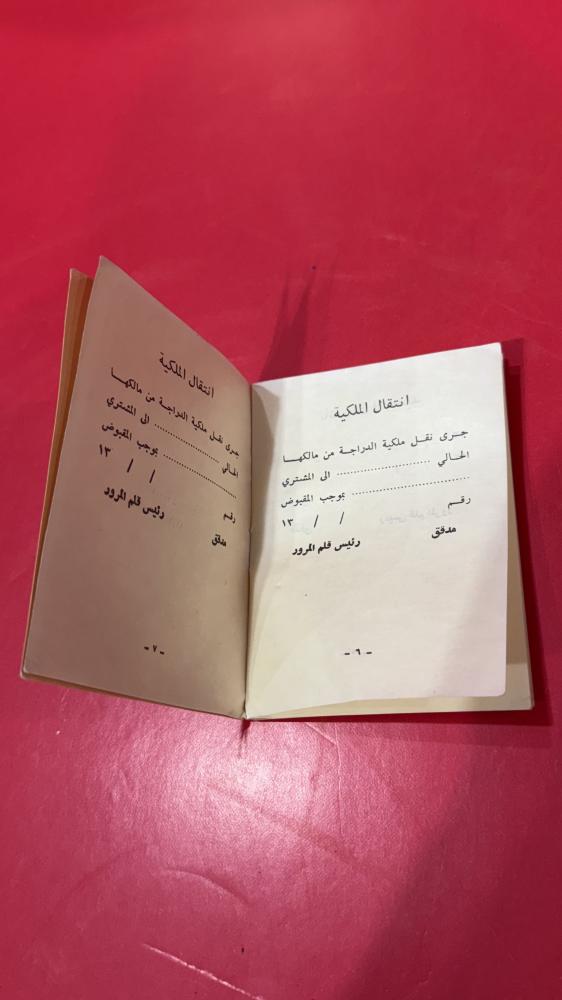 انتقال الملكية
جـرى نقـل ملكية الدراجـة من مالكهـا
الحالي .......................... الى المشتري
.................................. بموجب المقبوض
رقـم / / ١٣
مدقق رئيس قلم المرور
- ٦ -
انتقال الملكية
جـرى نقـل ملكية الدراجـة من مالكهـا
الحالي .................. الى المشتري
...................... بموجب المقبوض
رقـم / / ١٣
مدقق رئيس قلم المرور
- ٧ -